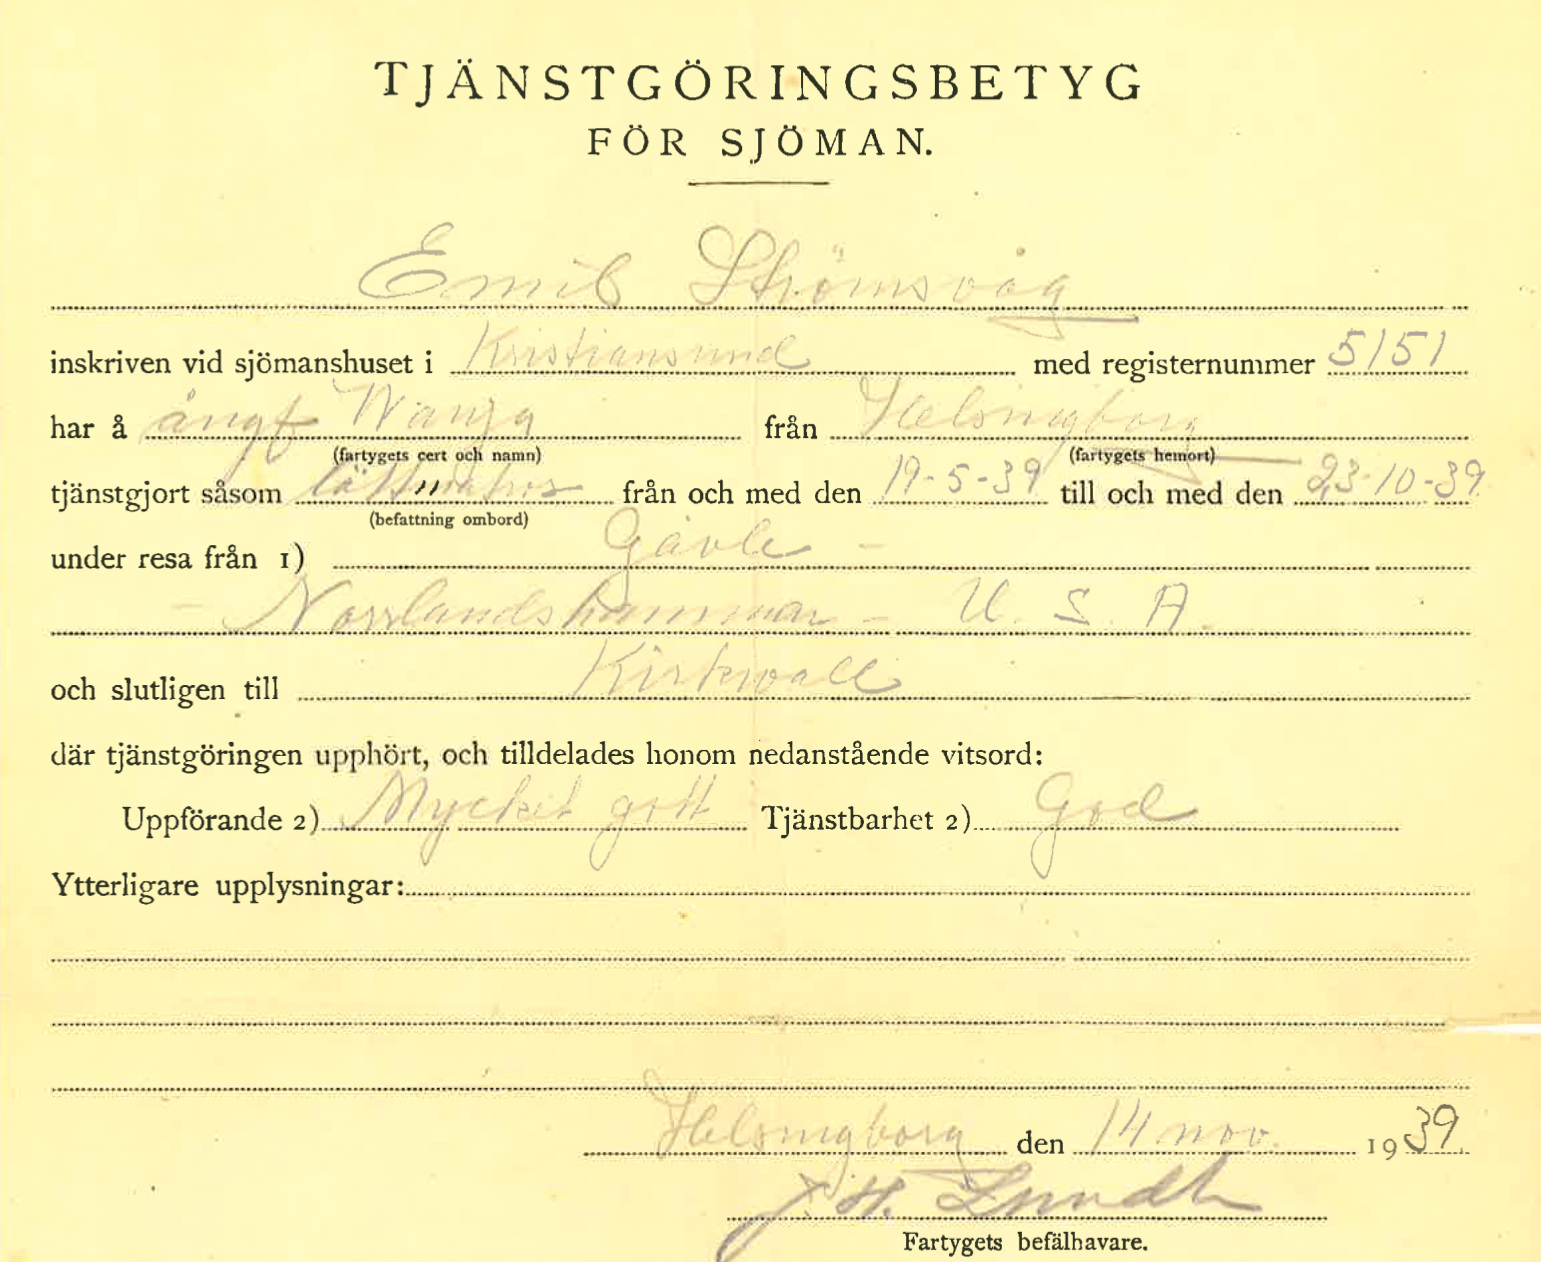 TJÄNSTGÖRINGSBETYG
FÖR SJÖMAN.
Emil Strömsvåg
inskriven vid sjömanshuset i Kristiansund med registernummer 5151
har å ångf Wanja från Helsingborg
(fartygets cert och namn) (fartygets hemort)
tjänstgjort såsom från och med den 19-5-39 till och med den 23-10-39
(befattning ombord)
under resa från 1) Gävle –
– Norrlandshamnar – U.S.A.
och slutligen till Kirkwall
där tjänstgöringen upphört, och tilldelades honom nedanstående vitsord:
Uppförande 2) Mycket gott Tjänstbarhet 2) God
Ytterligare upplysningar:
Helsingborg den 14 nov. 1939.
J. H. Lundh
Fartygets befälhavare.